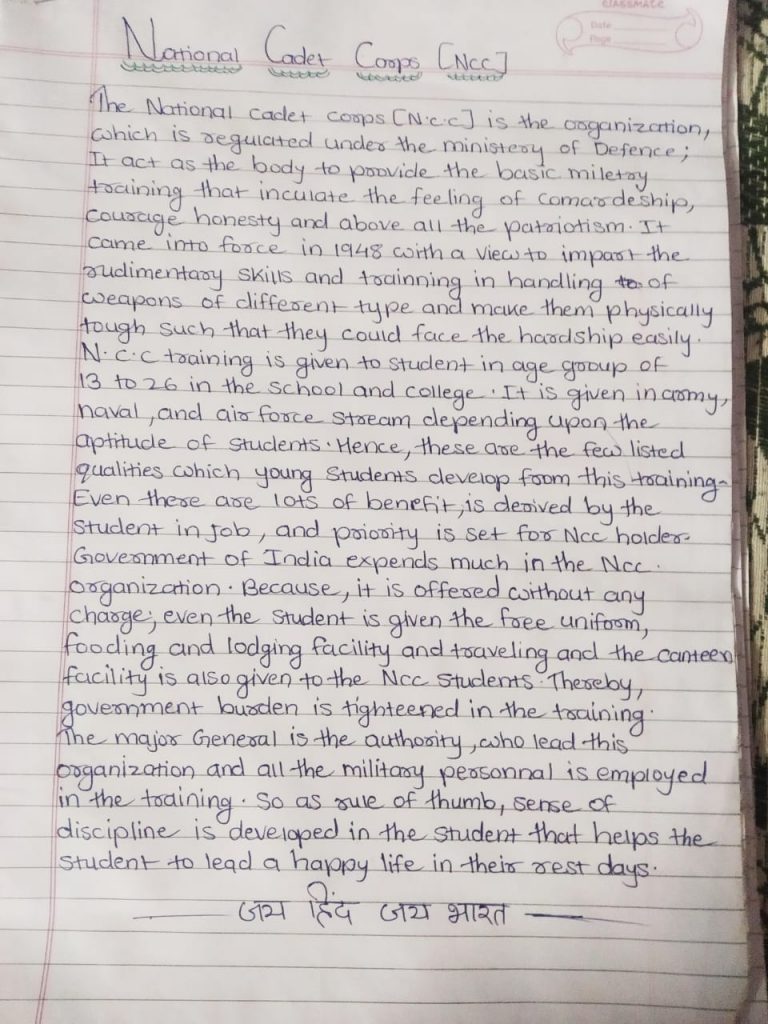 CLASSMATE
Date
Page
National Cadet Corps [NCC]
The National cadet corps [N.C.C] is the organization,
which is regulated under the ministery of Defence;
It act as the body to provide the basic miletry
training that inculate the feeling of comardeship,
courage honesty and above all the patriotism. It
came into force in 1948 with a view to impart the
rudimentary skills and trainning in handling to of
weapons of different type and make them physically
tough such that they could face the hardship easily.
N.C.C training is given to student in age group of
13 to 26 in the school and college. It is given in army,
naval, and air force stream depending upon the
aptitude of students. Hence, these are the few listed
qualities which young students develop from this training-
Even there are lots of benefit, is derived by the
student in job, and priority is set for NCC holder-
Government of India expends much in the NCC.
organization. Because, it is offered without any
charge; even the student is given the free uniform,
fooding and lodging facility and traveling and the canteen
facility is also given to the NCC students. Thereby,
government burden is tighteened in the training.
The major General is the authority, who lead this
organization and all the military personnal is employed
in the training. So as rule of thumb, sense of
discipline is developed in the student that helps the
student to lead a happy life in their rest days.
जय हिंद जय भारत